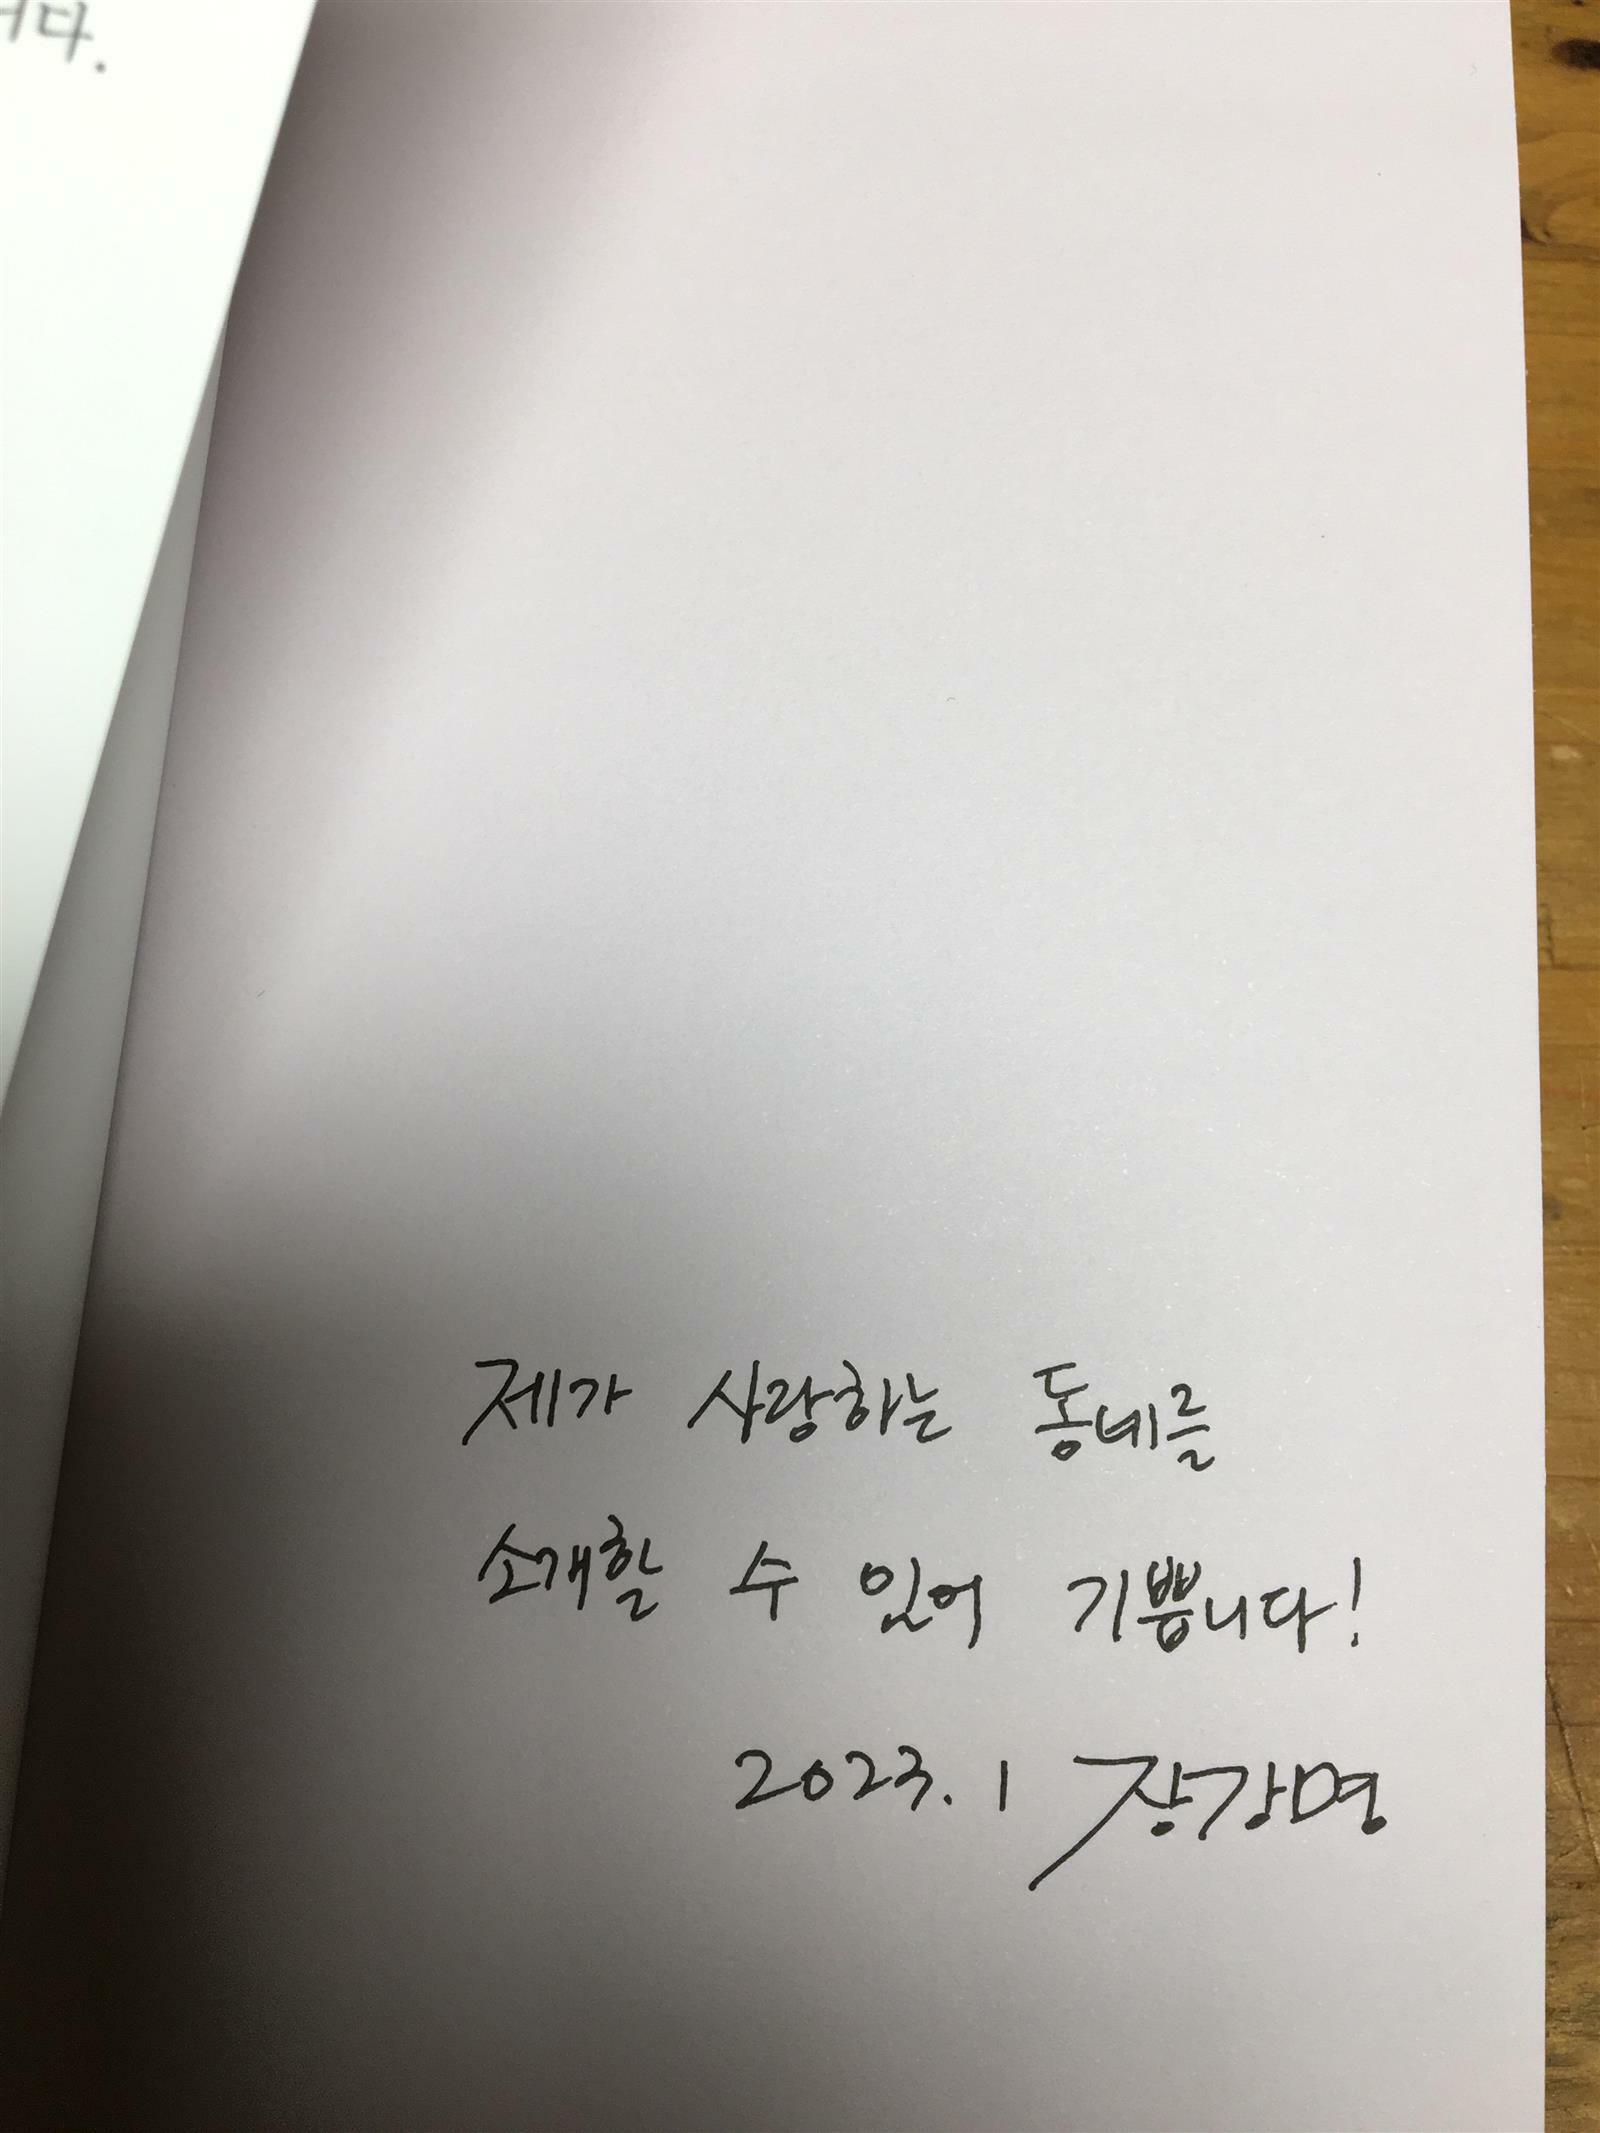 니다.
제가 사랑하는 동네를
소개할 수 있어 기쁩니다!
2023. 1 장강명